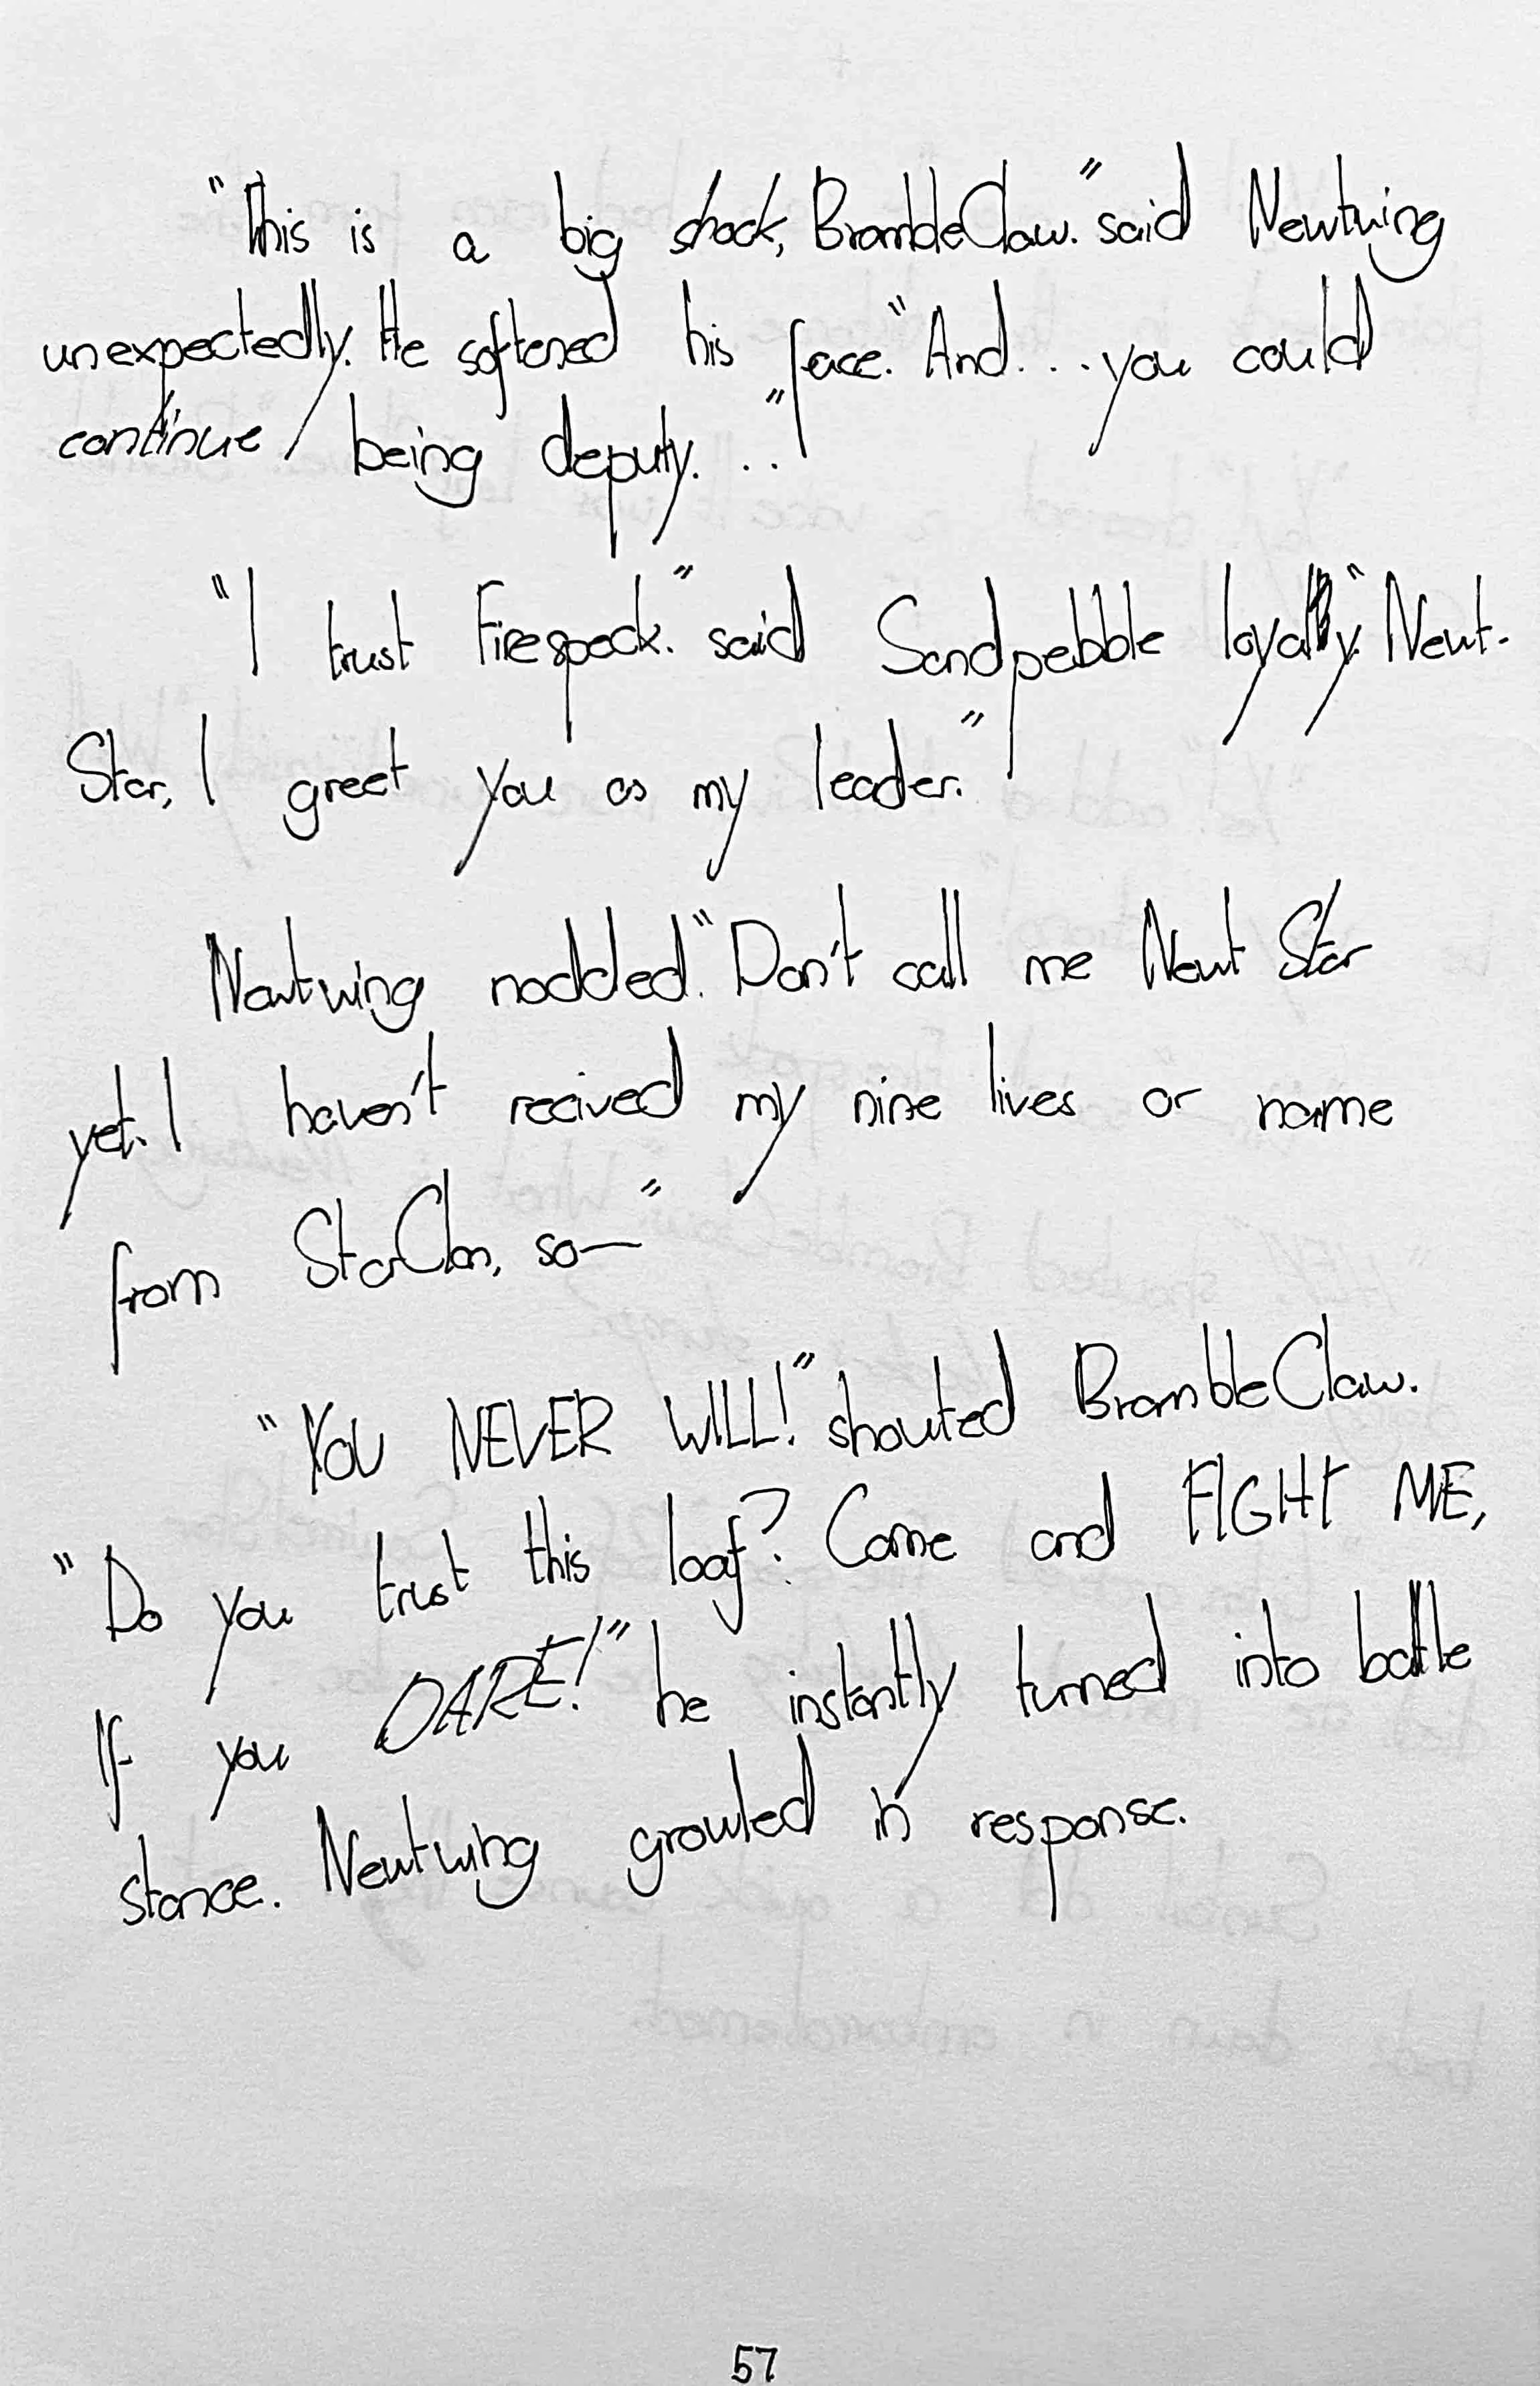 "This is a big shock, BrambleClaw." said Newtwing
unexpectedly. He softened his face. "And... you could
continue being deputy..."
"I trust Firespeck." said Sandpebble loyally. "Newt-
Star, I greet you as my leader."
Newtwing nodded. "Don't call me Newt Star
yet. I haven't recived my nine lives or name
from StarClan, so—"
"YOU NEVER WILL!" shouted BrambleClaw.
"Do you trust this loaf? Come and FIGHT ME,
If you DARE!" he instantly turned into battle
stance. Newtwing growled in response.
57